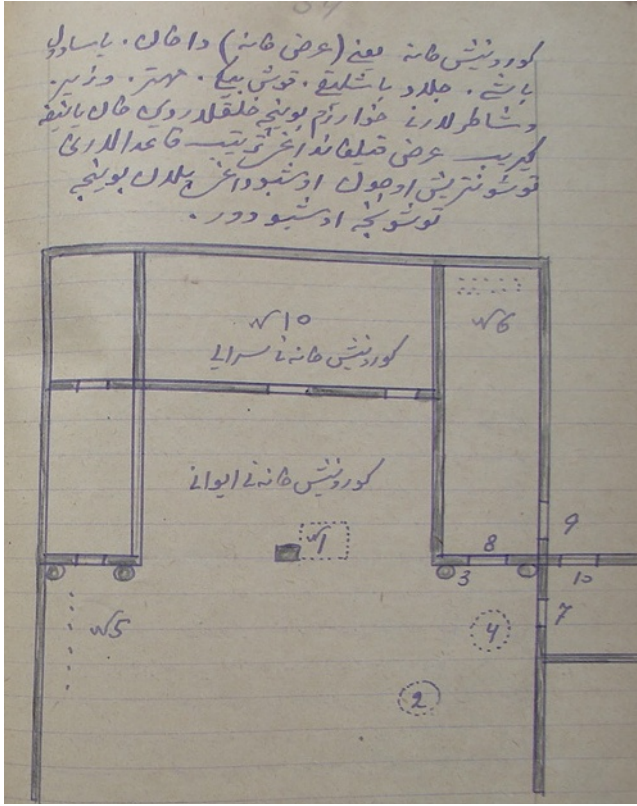 کورونیش خانه یعنی (عرض خانه) دا خان. یاساول
باشی. جلدو باشلیق. قوش بیگی. مهتر. وزیر.
و شاطرلرنی خوارزم بوینچه خلقلر روی خان یانیغه
کیریب عرض قیلغانداغی ترتیب قاعدالرنی
اوصول اوشبو داغی پلان بوینچه
توشونچه اوشبو دور.
№10
کورونیش خانه نی سرایی
№6
کورونیش خانه نی ایوانی
№1
9
8
3
10
7
№5
4
2